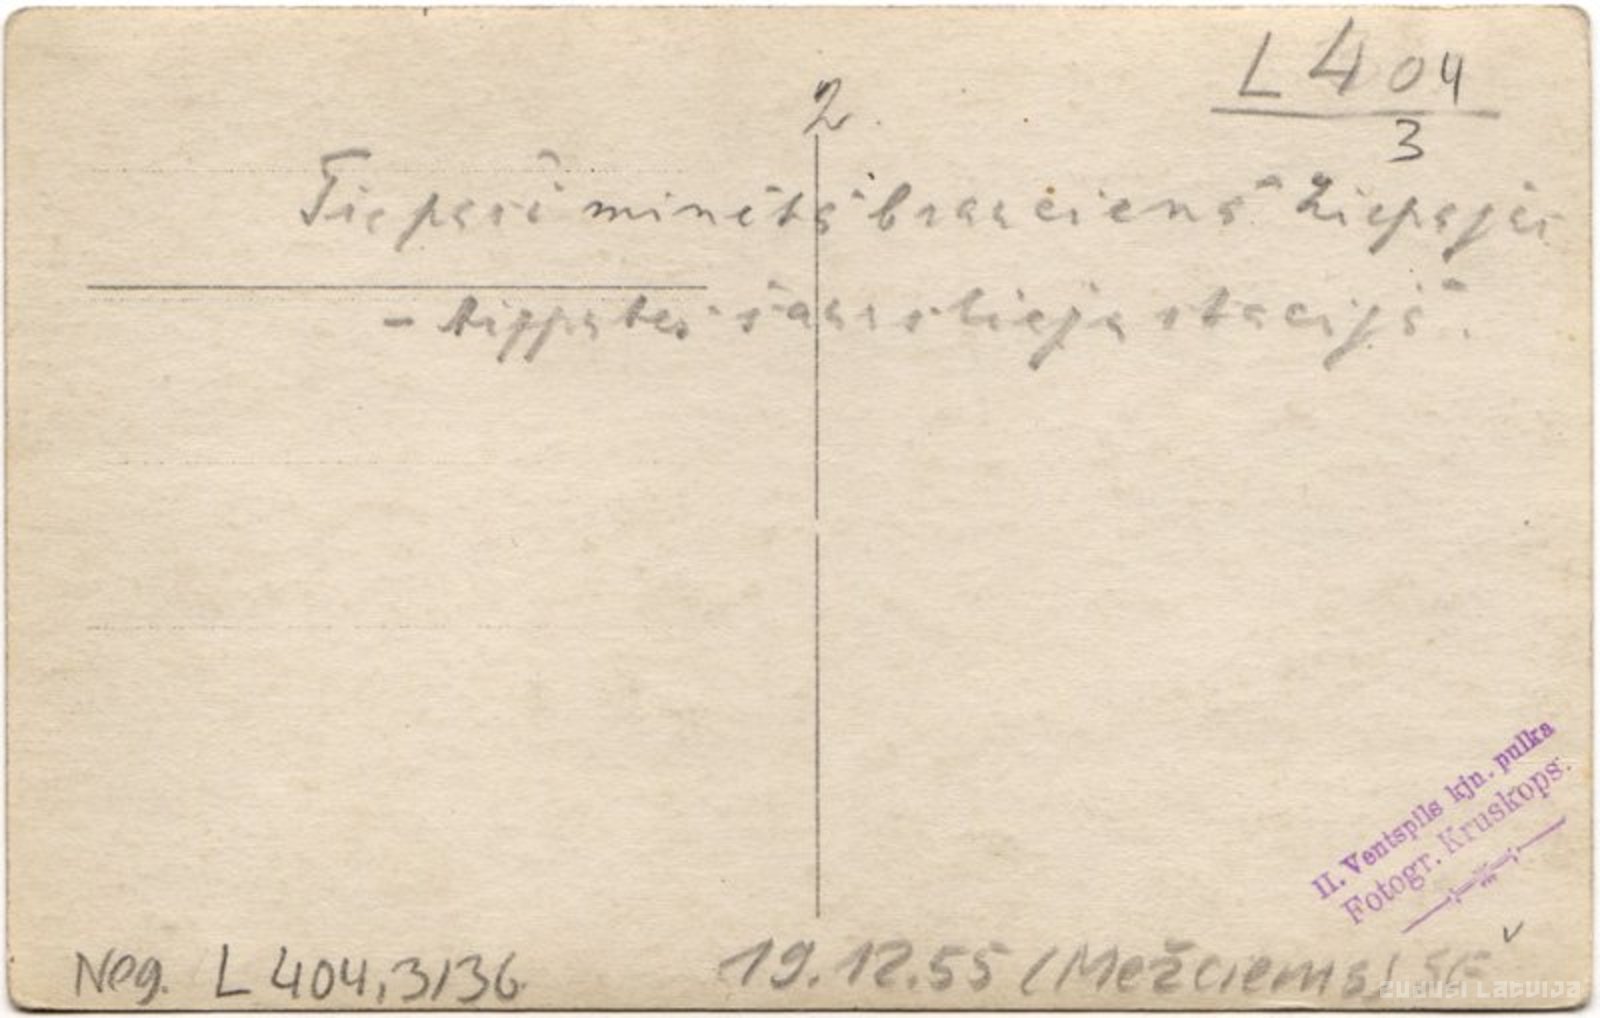 L 404
3
2.
Tiepaši minētā braucienā Liepājas
- Aizputes šaursliežu stacijā.
II. Ventspils kjn. pulka
Fotogr. Kruskops.
Neg. L 404,3/36
19.12.55 (Mežciems)
zudusi Latvija